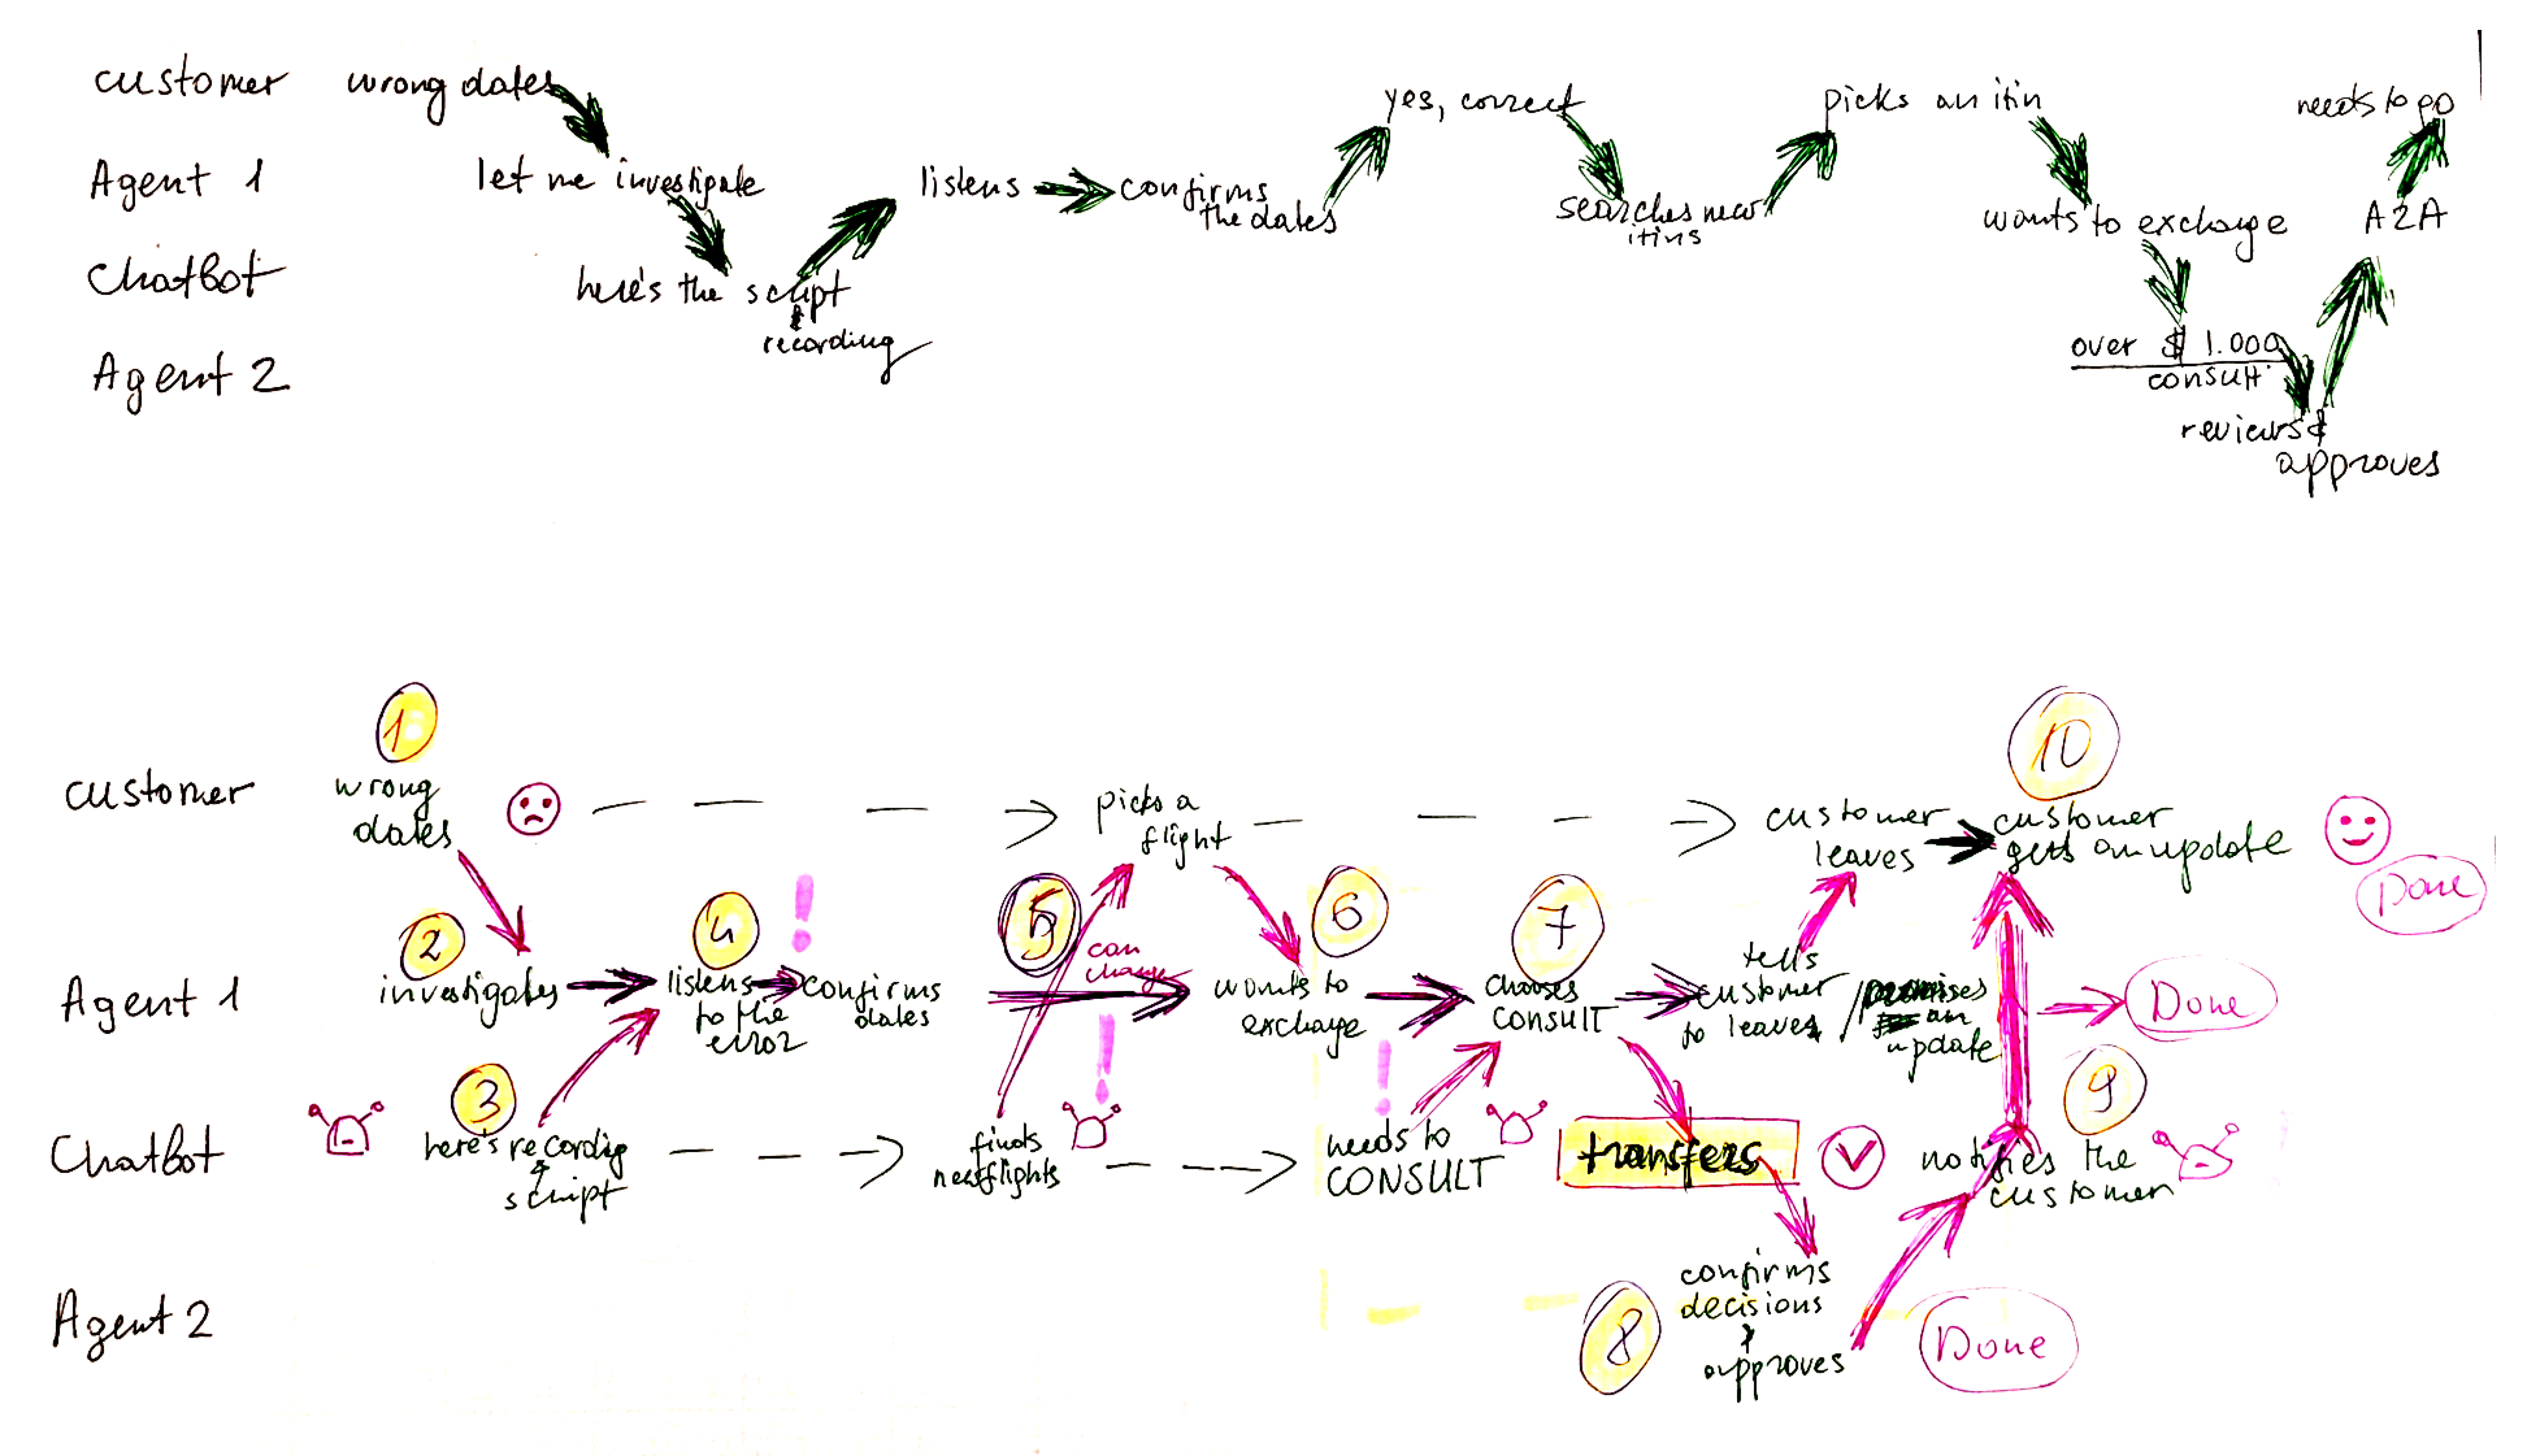 customer wrong dates yes, correct picks an itin needs to go
Agent 1 let me investigate listens confirms
the dates searches new
itins wants to exchange A2A
Chatbot here's the script
&
recording
over $ 1.000
consult
Agent 2
reviews &
approves
1
10
customer wrong
dates picks a
flight customer
leaves customer
gets an update
Done
2
4
5
6
7
Agent 1 investigates listens
to the
error confirms
dates can
change wants to
exchange chooses
CONSULT tells
customer
to leaves / promises
an
update Done
3
9
Chatbot here's recordig
&
script finds
new flights needs to
CONSULT transfers notifies the
customer
8
Agent 2 confirms
decisions
&
approves Done